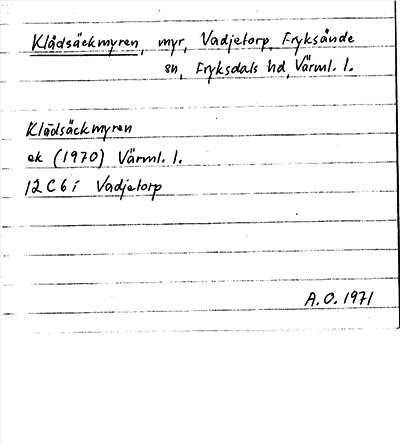 Klådsäckmyren, myr, Vadjetorp, Fryksände
sn, Fryksdals hd, Värml. l.
Klådsäckmyren
ek (1970) Värml. l.
12 C 6 i Vadjetorp
A. O. 1971